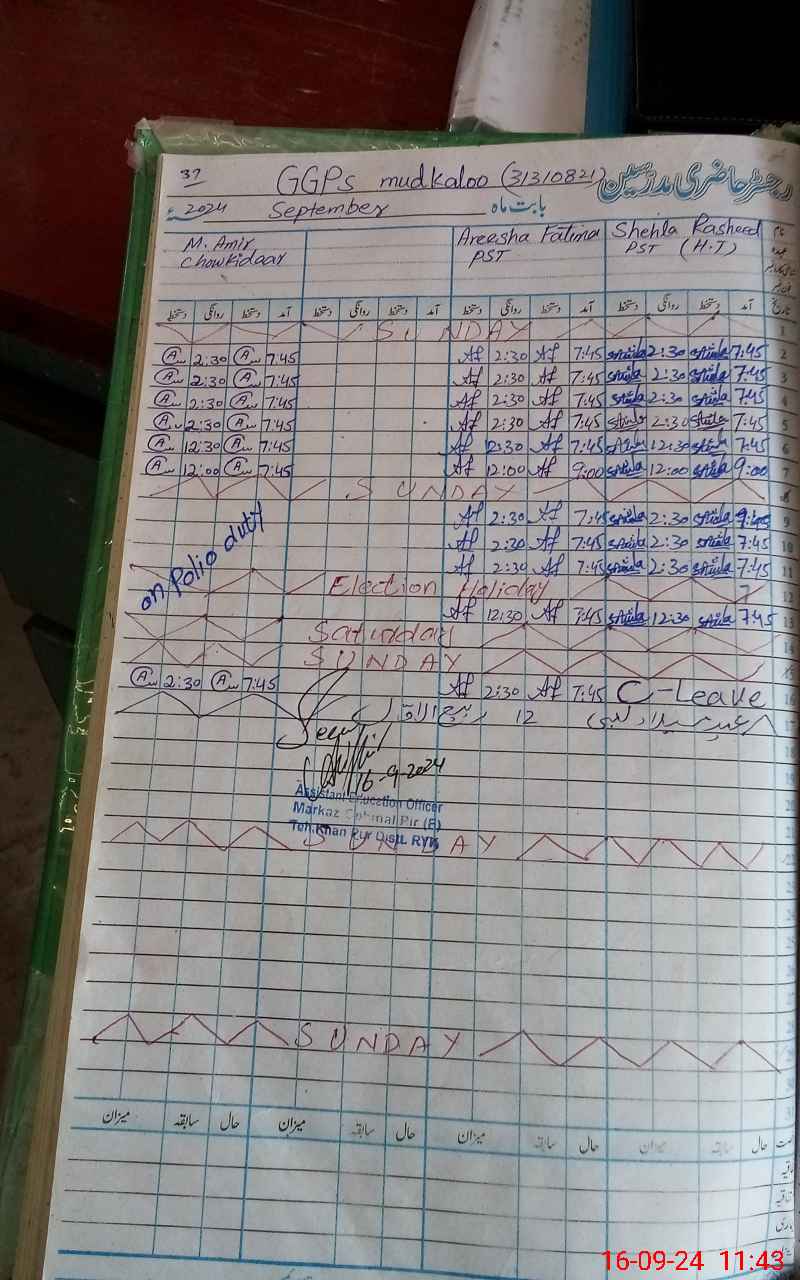 37 GGPs mudkaloo (31310821) رجسٹر حاضری مدرسین
2024 September بابت ماہ
M. Amir Areesha Fatima Shehla Rasheed نام
Chowkidaar PST PST (H.T) عہدہ
دستخط روانگی دستخط آمد دستخط روانگی دستخط آمد دستخط روانگی دستخط آمد دستخط روانگی دستخط آمد تاریخ
SUNDAY 1
2:30 7:45 Af 2:30 Af 7:45 2:30 7:45 2
2:30 7:45 Af 2:30 Af 7:45 2:30 7:45 3
2:30 7:45 Af 2:30 Af 7:45 2:30 7:45 4
2:30 7:45 Af 2:30 Af 7:45 2:30 7:45 5
12:30 7:45 Af 12:30 Af 7:45 12:30 7:45 6
12:00 7:45 Af 12:00 Af 9:00 12:00 9:00 7
SUNDAY 8
Af 2:30 Af 7:45 2:30 9
on Polio duty Af 2:30 Af 7:45 2:30 7:45 10
Af 2:30 Af 7:45 2:30 7:45 11
Election Holiday 12
Af 12:30 Af 7:45 12:30 7:45 13
Saturday 14
SUNDAY 15
2:30 7:45 Af 2:30 Af 7:45 C-Leave 16
12 ربیع الاول عید میلاد النبی 17
Seen
18
16-9-2024
Assistant Education Officer
Markaz
Teh. Khan Pur Distt. RYK
21
SUNDAY 22
SUNDAY
میزان سابقہ حال میزان سابقہ حال میزان سابقہ حال میزان سابقہ حال
16-09-24 11:43